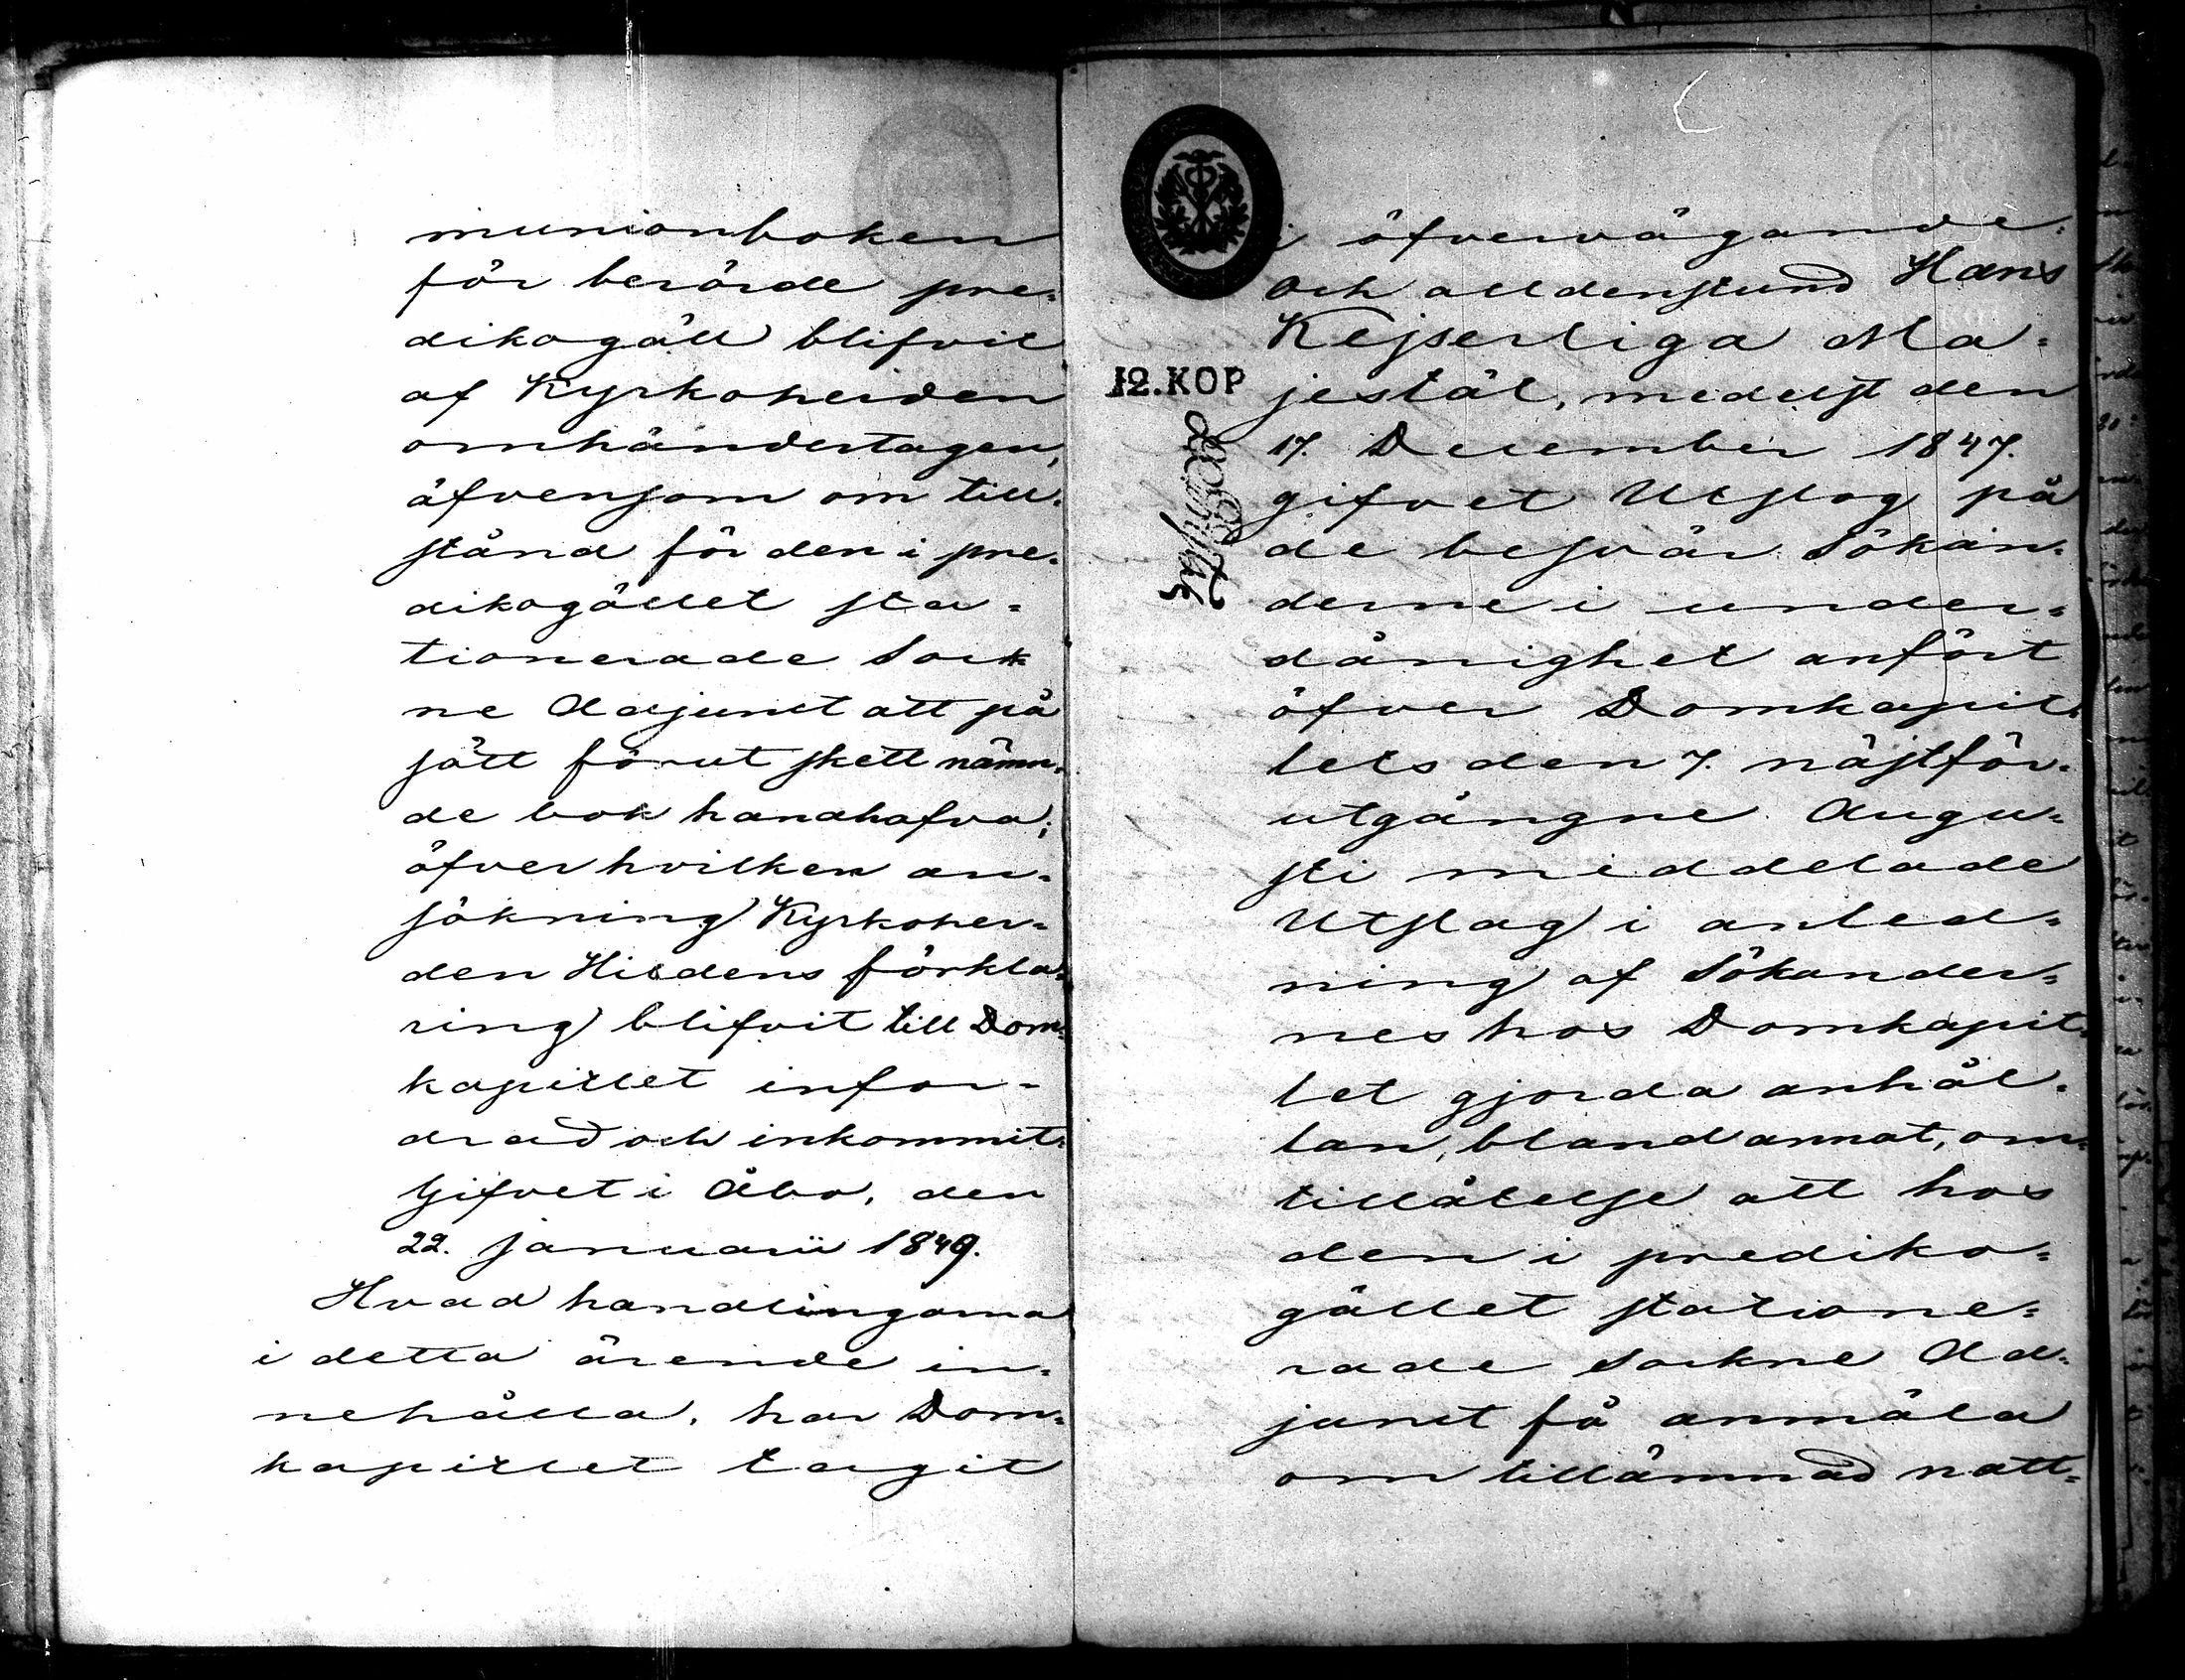 munionboken
för berörde pre=
dikogäll blifvit
af Kyrkoherden
omhändertagen,
äfvensom om till=
stånd för den i pre=
dikogället sta=
tionerade Sock
ne Adjunct att på
sätt förut skett nämn=
de bok handhafva;
öfver hvilken an=
sökning Kyrkoher=
den Hildens förkla=
ring blifvit till Dom=
kapitlet infor=
drad och inkommit
Gifvet i Åbo, den
22. Januarii 1849.
Hvad handlingarna
i detta ärende in=
nehålla, har Dom=
kapitlet tagit
i öfvervägande:
Och alldenstund Hans
Kejserliga Ma=
12.KOP
jestät, medelst den
17. December 1847.
gifvet Utslag på
de besvär Sökan=
derne i under=
dånighet anfört
öfver Domkapit=
lets den 7. näst för=
utgångne Augu=
sti meddelade
Utslag i anled=
ning af Sökander=
nes hos Domkapit=
let gjorda anhål=
lan, bland annat, om
tillåtelse att hos
den i prediko=
gället statione=
rade Sockne Ad=
junct få anmäla
om tillämnad natt=